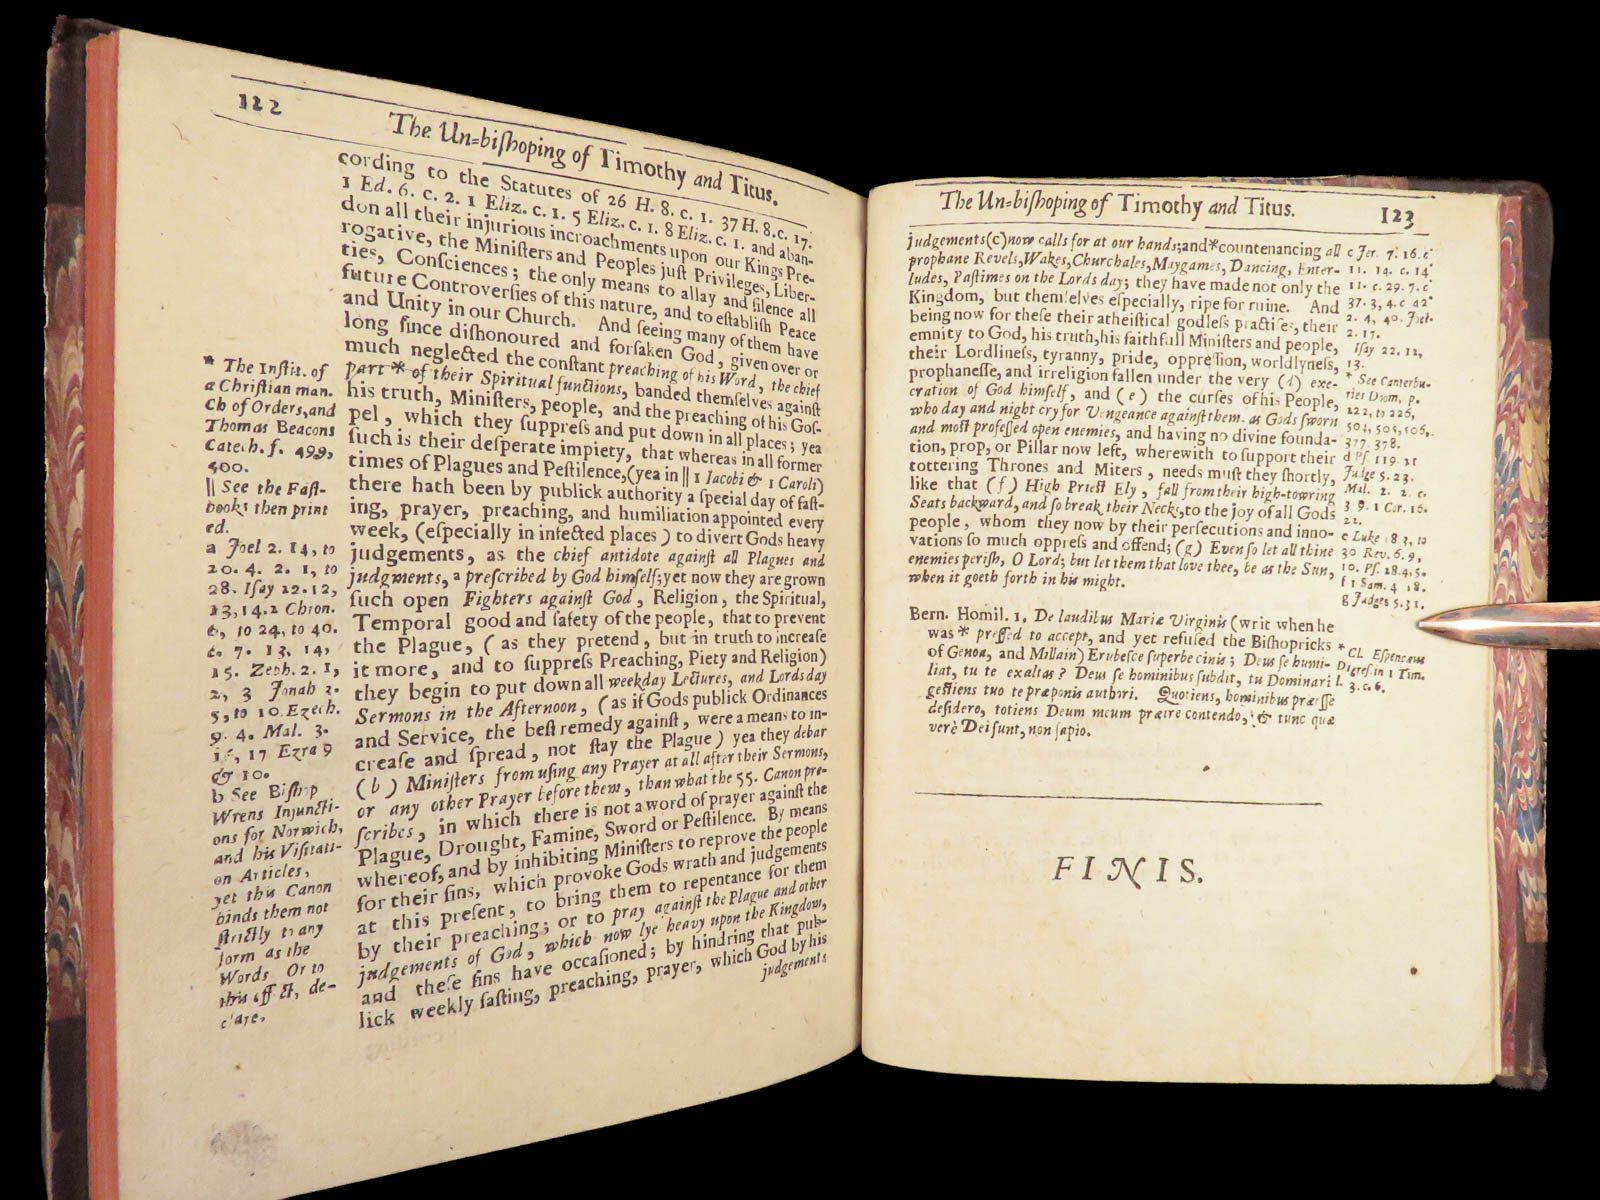 122
The Un=biſhoping of Timothy and Titus.
cording to the Statutes of 26 H. 8. c. 1. 37 H. 8. c. 17.
1 Ed. 6. c. 2. 1 Eliz. c. 1. 5 Eliz. c. 1. 8 Eliz. c. 1. and aban-
don all their injurious incroachments upon our Kings Pre-
rogative, the Miniſters and Peoples juſt Privileges, Liber-
ties, Conſciences; the only means to allay and ſilence all
future Controverſies of this nature, and to eſtabliſh Peace
and Unity in our Church. And ſeeing many of them have
long ſince diſhonoured and forſaken God, given over or
much neglected the conſtant preaching of his Word, the chief
part * of their Spiritual functions, banded themſelves againſt
his truth, Miniſters, people, and the preaching of his Goſ-
pel, which they ſuppreſs and put down in all places; yea
ſuch is their deſperate impiety, that whereas in all former
times of Plagues and Peſtilence, (yea in || 1 Iacobi & 1 Caroli)
there hath been by publick authority a ſpecial day of faſt-
ing, prayer, preaching, and humiliation appointed every
week, (eſpecially in infected places) to divert Gods heavy
judgements, as the chief antidote againſt all Plagues and
judgments, a preſcribed by God himſelf; yet now they are grown
ſuch open Fighters againſt God, Religion, the Spiritual,
Temporal good and ſafety of the people, that to prevent
the Plague, (as they pretend, but in truth to increaſe
it more, and to ſuppreſs Preaching, Piety and Religion)
they begin to put down all weekday Lectures, and Lords day
Sermons in the Afternoon, (as if Gods publick Ordinances
and Service, the beſt remedy againſt, were a means to in-
creaſe and ſpread, not ſtay the Plague) yea they debar
(b) Miniſters from uſing any Prayer at all after their Sermons,
or any other Prayer before them, than what the 55. Canon pre-
ſcribes, in which there is not a word of prayer againſt the
Plague, Drought, Famine, Sword or Peſtilence. By means
whereof, and by inhibiting Miniſters to reprove the people
for their ſins, which provoke Gods wrath and judgements
at this preſent, to bring them to repentance for them
by their preaching; or to pray againſt the Plague and other
judgements of God, which now lye heavy upon the Kingdom,
and theſe ſins have occaſioned; by hindring that pub-
lick weekly faſting, preaching, prayer, which God by his
judgements
* The Inſtit. of
a Chriſtian man.
Ch of Orders, and
Thomas Beacons
Catech. f. 499,
500.
|| See the Faſt-
books then print
ed.
a Joel 2. 14, to
20. 4. 2. 1, to
28. Iſay 22.12,
13, 14. 2 Chron.
6, 10 24, to 40.
c. 7. 13. 14,
15. Zeph. 2. 1,
2, 3 Jonah 3.
5, to 10. Ezech.
9. 4. Mal. 3.
16, 17 Ezra 9
& 10.
b See Biſhop
Wrens Injuncti-
ons for Norwich,
and his Viſitati-
on Articles,
yet this Canon
binds them not
ſtrictly to any
form as the
Words Or to
this effect, de-
clare.
The Un=biſhoping of Timothy and Titus.
123
judgements (c) now calls for at our hands; and * countenancing all
prophane Revels, Wakes, Churchales, Maygames, Dancing, Enter-
ludes, Paſtimes on the Lords day; they have made not only the
Kingdom, but themſelves eſpecially, ripe for ruine. And
being now for theſe their atheiſtical godleſs practiſes, their
emnity to God, his truth, his faithfull Miniſters and people,
their Lordlineſs, tyranny, pride, oppreſſion, worldlyneſs,
prophaneſſe, and irreligion fallen under the very (d) exe-
cration of God himſelf, and (e) the curſes of his People,
who day and night cry for Vengeance againſt them. as Gods ſworn
and moſt profeſſed open enemies, and having no divine founda-
tion, prop, or Pillar now left, wherewith to ſupport their
tottering Thrones and Miters, needs muſt they ſhortly,
like that (f) High Prieſt Ely, fall from their high-towring
Seats backward, and ſo break their Necks, to the joy of all Gods
people, whom they now by their perſecutions and inno-
vations ſo much oppreſs and offend; (g) Even ſo let all thine
enemies periſh, O Lord; but let them that love thee, be as the Sun,
when it goeth forth in his might.
c Jer. 7. 16. c
11. 14. c. 14
11. c. 29. 7. c
37. 3, 4. c 42
2. 4, 40. Joel.
2. 17.
Iſay 22. 12,
13.
* See Canterbu-
ries Doom, p.
122, to 226,
504, 505, 506,
377. 378.
d Pſ. 119. 21
Judge 5. 23.
Mal. 2. 2. c.
3 9. 1 Cor. 16.
22.
e Luke 18 3, to
30 Rev. 6. 9,
10. Pſ. 18. 4, 5.
f 1 Sam. 4 18.
g Judges 5. 31.
Bern. Homil. 1. De laudibus Mariæ Virginis (writ when he
was * preſſed to accept, and yet refuſed the Biſhopricks
of Genoa, and Millain) Erubeſce ſuperbe cinis; Deus ſe humi-
liat, tu te exaltas? Deus ſe hominibus ſubdit, tu Dominari
geſtiens tuo te præponis authori. Quotiens, hominibus præeſſe
deſidero, totiens Deum meum præire contendo, & tunc quæ
verè Dei ſunt, non ſapio.
* Cl. Eſpencæus
Digreſ. in 1 Tim.
l. 3. c. 6.
FINIS.